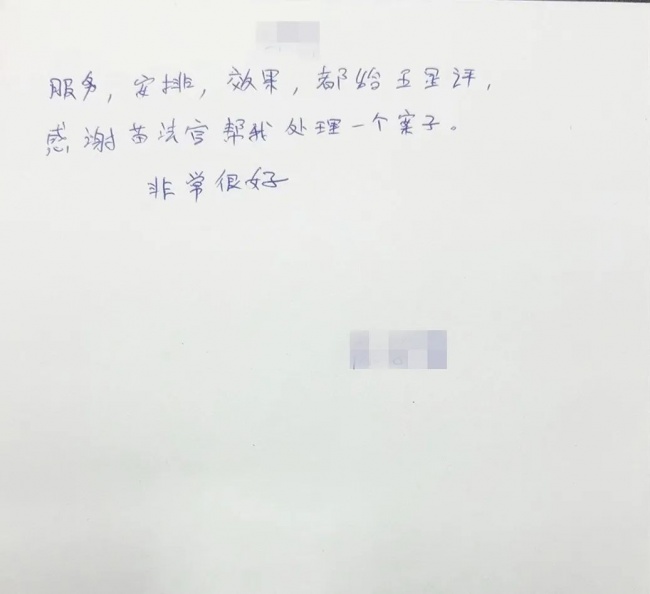 服务，安排，效果，都给五星评，
感谢苗法官帮我处理一个案子。
非常很好